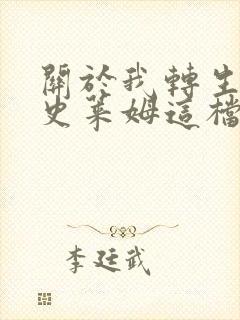 關於我轉生
史萊姆這檔
李廷武